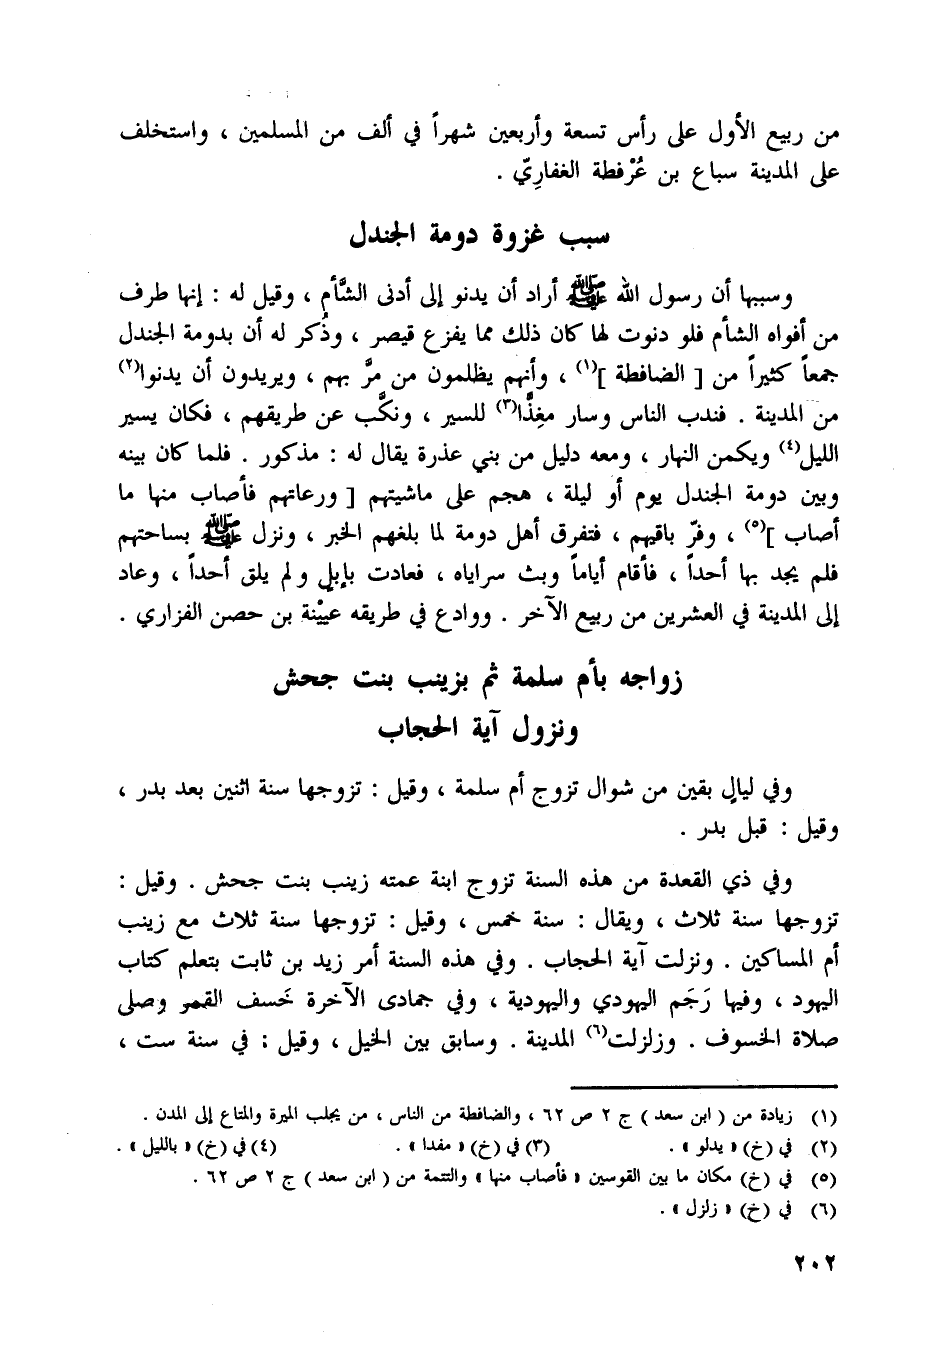 من ربيع الأول على رأس تسعة وأربعين شهراً في ألف من المسلمين ، واستخلف
على المدينة سباع بن عُرْفطة الغفاريّ .
سبب غزوة دومة الجندل
وسببها أن رسول الله ﷺ أراد أن يدنو إلى أدنى الشَّأم ، وقيل له : إنها طرف
من أفواه الشأم فلو دنوت لها كان ذلك مما يفزع قيصر ، وذُكر له أن بدومة الجندل
جمعاً كثيراً من [ الضافطة ](١) ، وأنهم يظلمون من مرَّ بهم ، ويريدون أن يدنوا(٢)
من المدينة . فندب الناس وسار مغِذًّا(٣) للسير ، ونكَّب عن طريقهم ، فكان يسير
الليل(٤) ويكمن النهار ، ومعه دليل من بني عذرة يقال له : مذكور . فلما كان بينه
وبين دومة الجندل يوم أو ليلة ، هجم على ماشيتهم [ ورعاتهم فأصاب منها ما
أصاب ](٥) ، وفرّ باقيهم ، فتفرق أهل دومة لما بلغهم الخبر ، ونزل ﷺ بساحتهم
فلم يجد بها أحداً ، فأقام أياماً وبث سراياه ، فعادت بإبلٍ ولم يلق أحداً ، وعاد
إلى المدينة في العشرين من ربيع الآخر . ووادع في طريقه عيْنة بن حصن الفزاري .
زواجه بأم سلمة ثم بزينب بنت جحش
ونزول آية الحجاب
وفي ليالٍ بقين من شوال تزوج أم سلمة ، وقيل : تزوجها سنة اثنين بعد بدر ،
وقيل : قبل بدر .
وفي ذي القعدة من هذه السنة تزوج ابنة عمته زينب بنت جحش . وقيل :
تزوجها سنة ثلاث ، ويقال : سنة خمس ، وقيل : تزوجها سنة ثلاث مع زينب
أم المساكين . ونزلت آية الحجاب . وفي هذه السنة أمر زيد بن ثابت بتعلم كتاب
اليهود ، وفيها رَجَم اليهودي واليهودية ، وفي جمادى الآخرة خَسف القمر وصلى
صلاة الخسوف . وزلزلت(٦) المدينة . وسابق بين الخيل ، وقيل : في سنة ست ،
(١) زيادة من ( ابن سعد ) ج ٢ ص ٦٢ ، والضافطة من الناس ، من يجلب الميرة والمتاع إلى المدن .
(٢) في (خ) « يدلو » . (٣) في (خ) « مفدا » . (٤) في (خ) « بالليل » .
(٥) في (خ) مكان ما بين القوسين « فأصاب منها » والتتمة من ( ابن سعد ) ج ٢ ص ٦٢ .
(٦) في (خ) « زلزل » .
٢٠٢